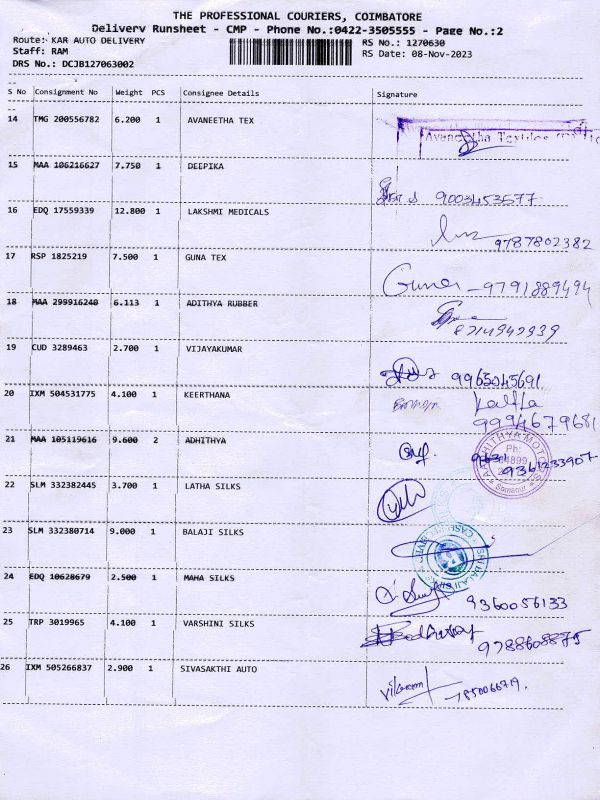 THE PROFESSIONAL COURIERS, COIMBATORE
Delivery Runsheet - CMP - Phone No.:0422-3505555 - Page No.:2
Route: KAR AUTO DELIVERY RS No.: 1270630
Staff: RAM RS Date: 08-Nov-2023
DRS No.: DCJB127063002
S No Consignment No Weight PCS Consignee Details Signature
14 TMG 200556782 6.200 1 AVANEETHA TEX
Avaneetha Textiles
15 MAA 106216627 7.750 1 DEEPIKA
9003453577
16 EDQ 17559339 12.800 1 LAKSHMI MEDICALS
9787802382
17 RSP 1825219 7.500 1 GUNA TEX
Guna - 9791889494
18 MAA 299916240 6.113 1 ADITHYA RUBBER
19 CUD 3289463 2.700 1 VIJAYAKUMAR
9965045691
20 IXM 504531775 4.100 1 KEERTHANA
9994679681
21 MAA 105119616 9.600 2 ADHITHYA
9361233907
AADHITHYA MOTO
Ph:
Somanur
22 SLM 332382445 3.700 1 LATHA SILKS
23 SLM 332380714 9.000 1 BALAJI SILKS
SRI BALAJI SILKS
24 EDQ 10628679 2.500 1 MAHA SILKS
9360056133
25 TRP 3019965 4.100 1 VARSHINI SILKS
9788608875
26 IXM 505266837 2.900 1 SIVASAKTHI AUTO
7850066719.